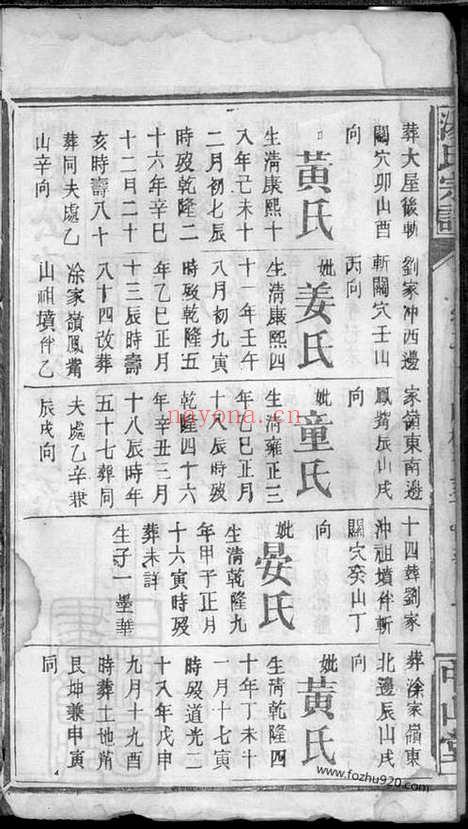 葬大屋後斬
關穴卯山酉
向
黃氏
生清康熙十
八年己未十
二月初七辰
時歿乾隆二
十六年辛巳
十二月二十
亥時壽八十
葬同夫處乙
山辛向
劉家冲西邊
斬關穴壬山
丙向
妣姜氏
生清康熙四
十一年壬午
八月初九寅
時歿乾隆五
年乙巳正月
十三辰時壽
八十四改葬
涂家嶺鳳嘴
山祖墳伴乙
家嶺東南邊
鳳嘴辰山戌
向
妣童氏
生清雍正三
年乙巳正月
十八辰時歿
乾隆四十六
年辛丑三月
十八辰時年
五十七葬同
夫處乙辛兼
辰戌向
十四葬劉家
冲祖墳伴斬
關穴癸山丁
向
妣晏氏
生清乾隆九
年甲子正月
十六寅時歿
葬未詳
生子一墨華
葬涂家嶺東
北邊辰山戌
向
妣黃氏
生清乾隆四
十年丁未十
一月十七寅
時歿道光二
十八年戊申
九月十九酉
時葬土地肖
艮坤兼申寅
同
nayona.cn
www.fozhu920.com